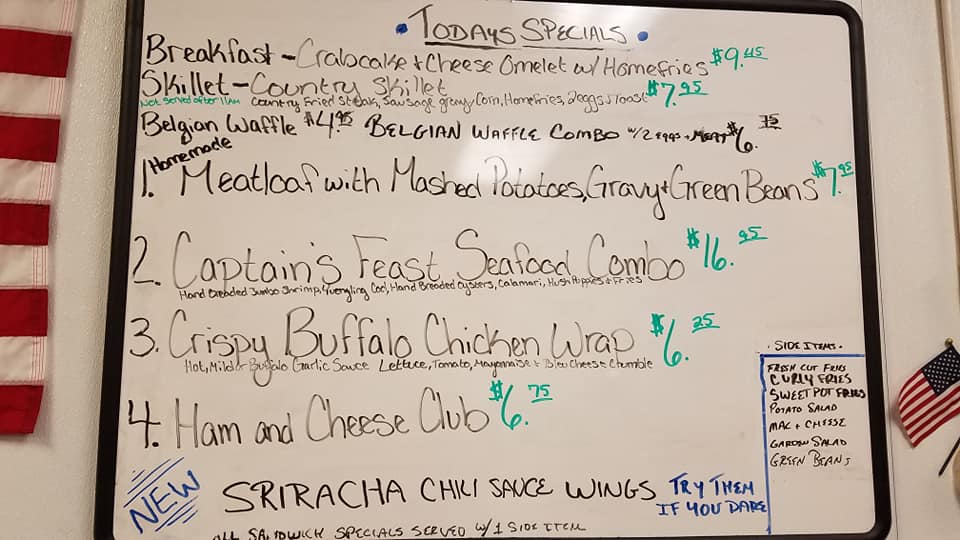 • TODAYS SPECIALS •
Breakfast - Crabcake + Cheese Omelet w/ Homefries $9.45
Skillet - Country Skillet $7.95
Not Served after 11am Country Fried Steak, Sausage gravy, Corn, Homefries, 2 eggs & Toast
Belgian Waffle $4.95 BELGIAN WAFFLE COMBO w/2 EGGS + MEAT $6.75
Homemade
1. Meatloaf with Mashed Potatoes, Gravy + Green Beans $7.95
2. Captain's Feast Seafood Combo $16.95
Hand Breaded Jumbo Shrimp, Yuengling Cod, Hand Breaded Oysters, Calamari, Hush Puppies + Fries
3. Crispy Buffalo Chicken Wrap $6.25
Hot, Mild or Buffalo Garlic Sauce Lettuce, Tomato, Mayonnaise + Bleu Cheese Crumble
4. Ham and Cheese Club $6.75
NEW
SRIRACHA CHILI SAUCE WINGS TRY THEM
IF YOU DARE
ALL SANDWICH SPECIALS SERVED W/ 1 SIDE ITEM
• SIDE ITEMS •
FRESH CUT FRIES
CURLY FRIES
SWEET POT FRIES
POTATO SALAD
MAC + CHEESE
GARDEN SALAD
GREEN BEANS